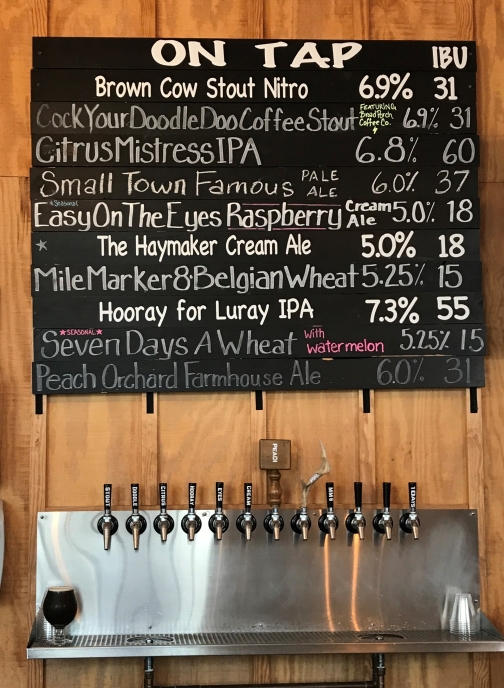 ON TAP IBU
Brown Cow Stout Nitro 6.9% 31
CockYourDoodleDooCoffeeStout FEATURING Broad Porch Coffee Co. 6.9% 31
CitrusMistressIPA 6.8% 60
Small Town Famous PALE ALE 6.0% 37
*Seasonal
EasyOnTheEyes Raspberry Cream Ale 5.0% 18
The Haymaker Cream Ale 5.0% 18
MileMarker8BelgianWheat 5.25% 15
Hooray for Luray IPA 7.3% 55
*SEASONAL*
Seven Days A Wheat With watermelon 5.25% 15
Peach Orchard Farmhouse Ale 6.0% 31
PEACH
STOUT
DOODLE D
CITRUS
HOORAY
EYES
CREAM
MM8
7 DAYS